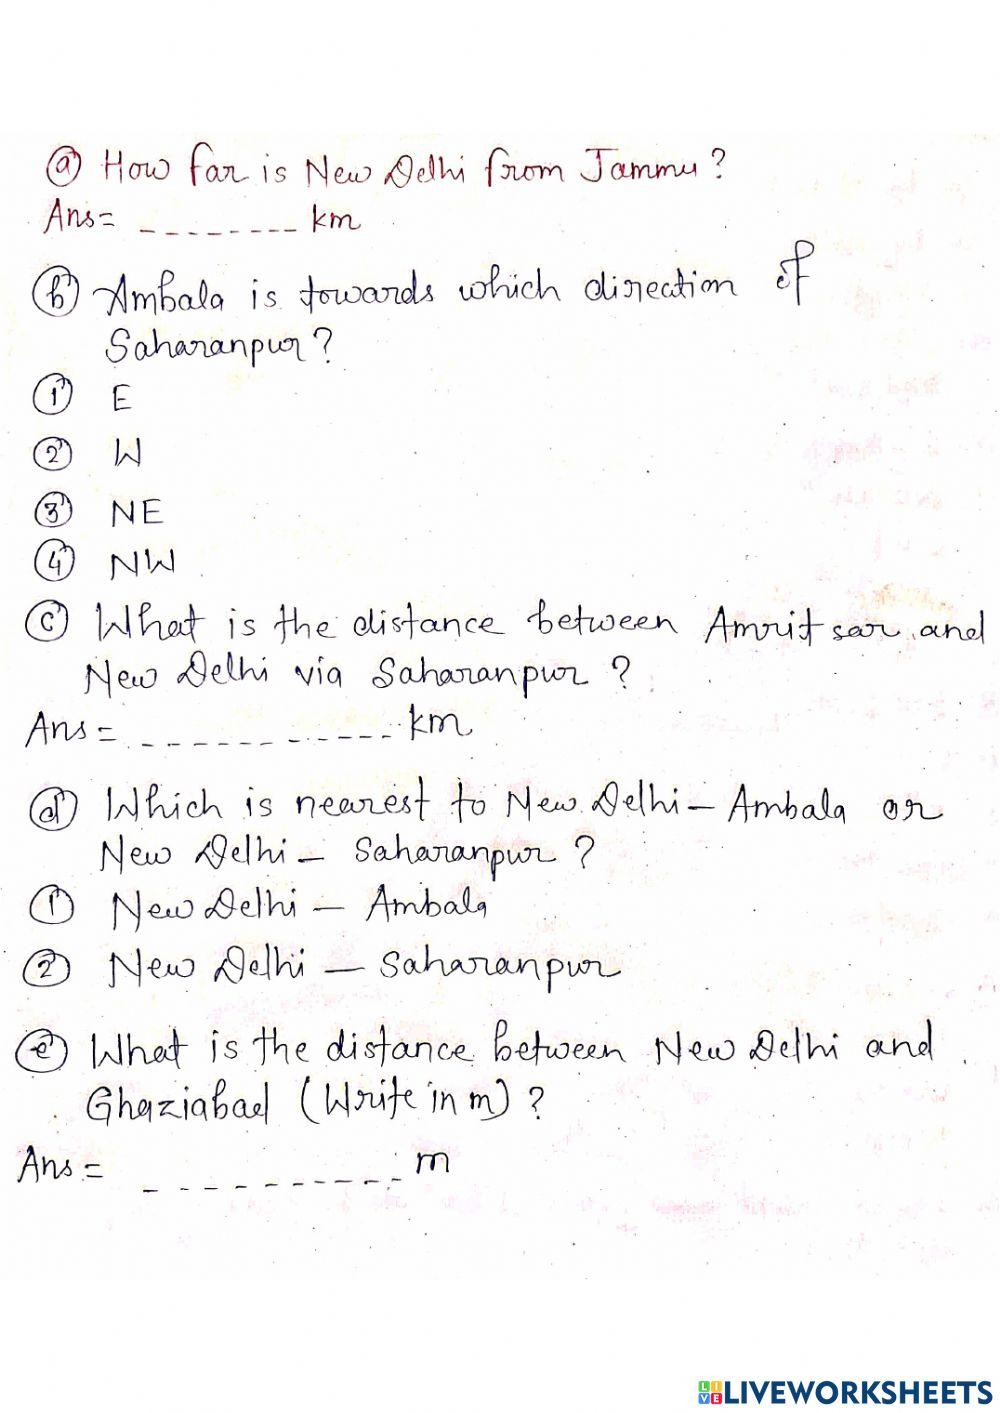 (a) How far is New Delhi from Jammu?
Ans= -------- km
(b) Ambala is towards which direction of
Saharanpur?
(1) E
(2) W
(3) NE
(4) NW
(c) What is the distance between Amritsar and
New Delhi via Saharanpur?
Ans= ------------ km
(d) Which is nearest to New Delhi- Ambala or
New Delhi- Saharanpur?
(1) New Delhi - Ambala
(2) New Delhi - Saharanpur
(e) What is the distance between New Delhi and
Ghaziabad (Write in m)?
Ans= ---------- m
LIVEWORKSHEETS